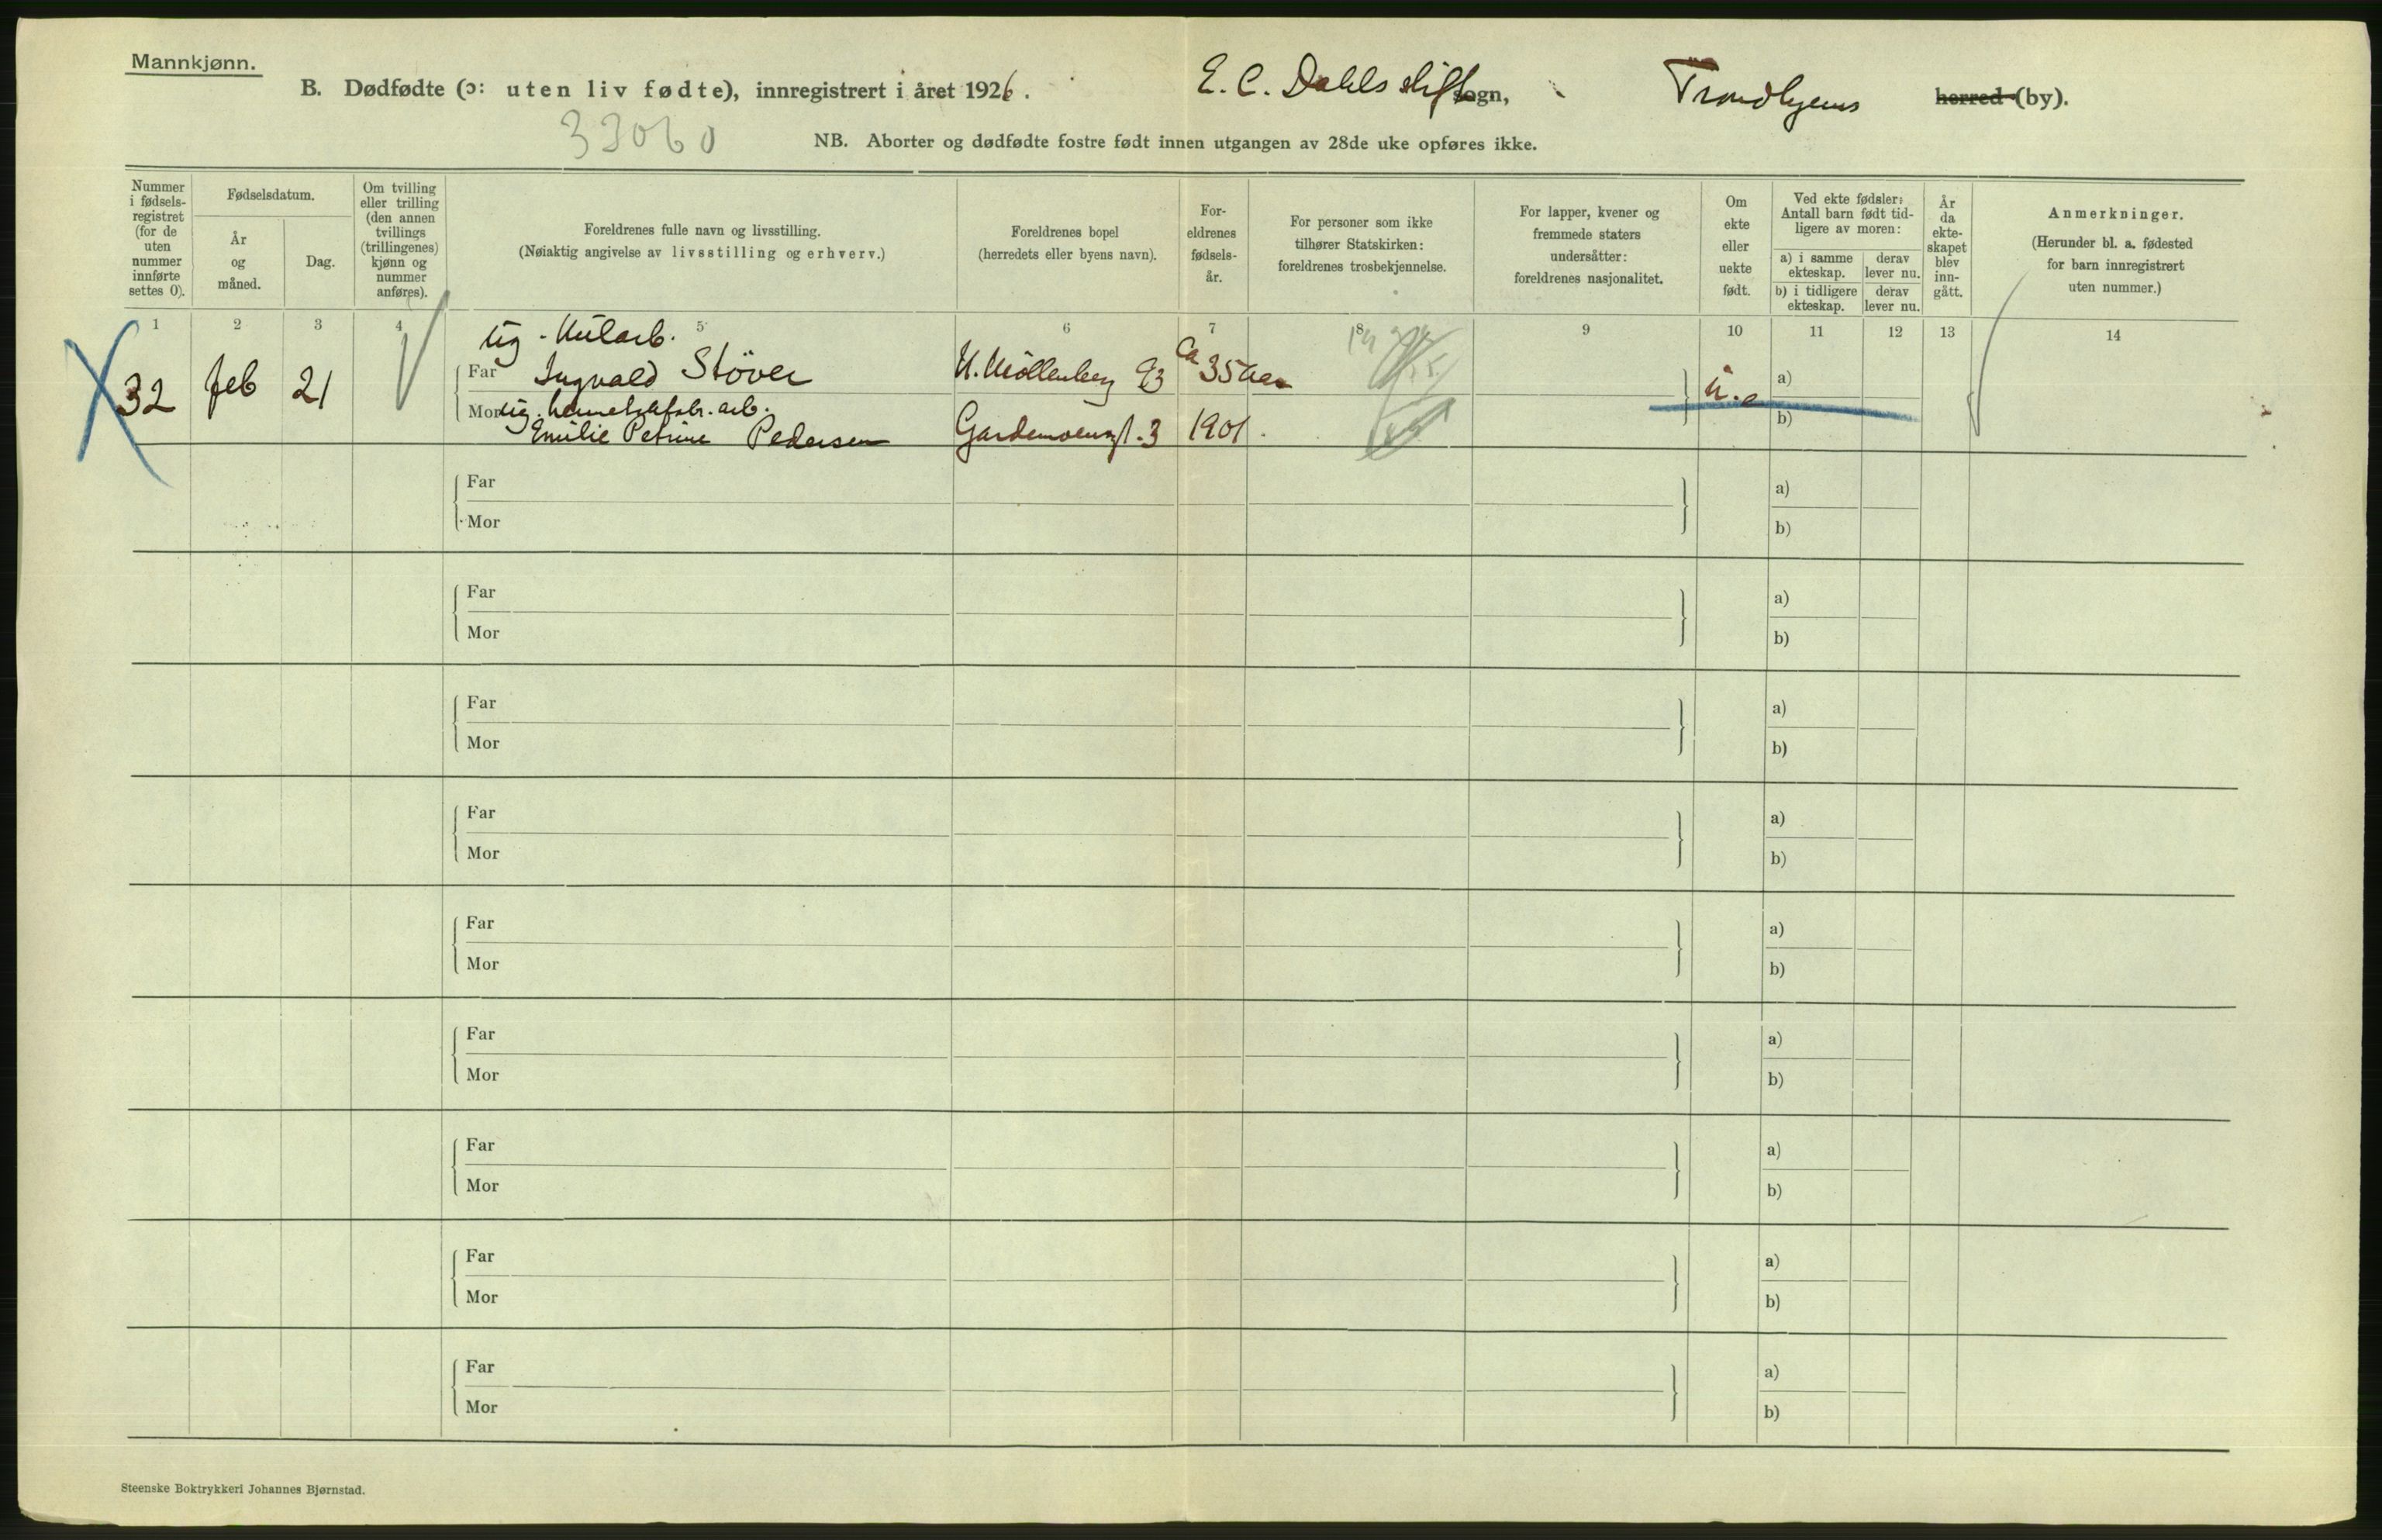 Mannkjønn.
B. Dødfødte (ɔ: uten liv fødte), innregistrert i året 1926. E. C. Dahls stift sogn, Trondhjems herred (by).
33060
NB. Aborter og dødfødte fostre født innen utgangen av 28de uke opføres ikke.
Nummer i fødsels-registret (for de uten nummer innførte settes 0).
Fødselsdatum.
År og måned.
Dag.
Om tvilling eller trilling (den annen tvillings (trillingenes) kjønn og nummer anføres).
Foreldrenes fulle navn og livsstilling.
(Nøiaktig angivelse av livsstilling og erhverv.)
Foreldrenes bopel
(herredets eller byens navn).
For-
eldrenes
fødsels-
år.
For personer som ikke
tilhører Statskirken:
foreldrenes trosbekjennelse.
For lapper, kvener og
fremmede staters
undersåtter:
foreldrenes nasjonalitet.
Om
ekte
eller
uekte
født.
Ved ekte fødsler:
Antall barn født tid-
ligere av moren:
a) i samme ekteskap.
derav lever nu.
b) i tidligere ekteskap.
derav lever nu.
År
da
ekte-
skapet
blev
inn-
gått.
Anmerkninger.
(Herunder bl. a. fødested
for barn innregistrert
uten nummer.)
1 2 3 4 5 6 7 8 9 10 11 12 13 14
32 feb 21
Far Ingvald Stöver U. Möllenberg 93 ca 35 aar
Mor
Emilie Petrine Pedersen 3 1901.
u.e
a)
b)
Far
Mor
a)
b)
Far
Mor
a)
b)
Far
Mor
a)
b)
Far
Mor
a)
b)
Far
Mor
a)
b)
Far
Mor
a)
b)
Far
Mor
a)
b)
Far
Mor
a)
b)
Far
Mor
a)
b)
Steenske Boktrykkeri Johannes Bjørnstad.